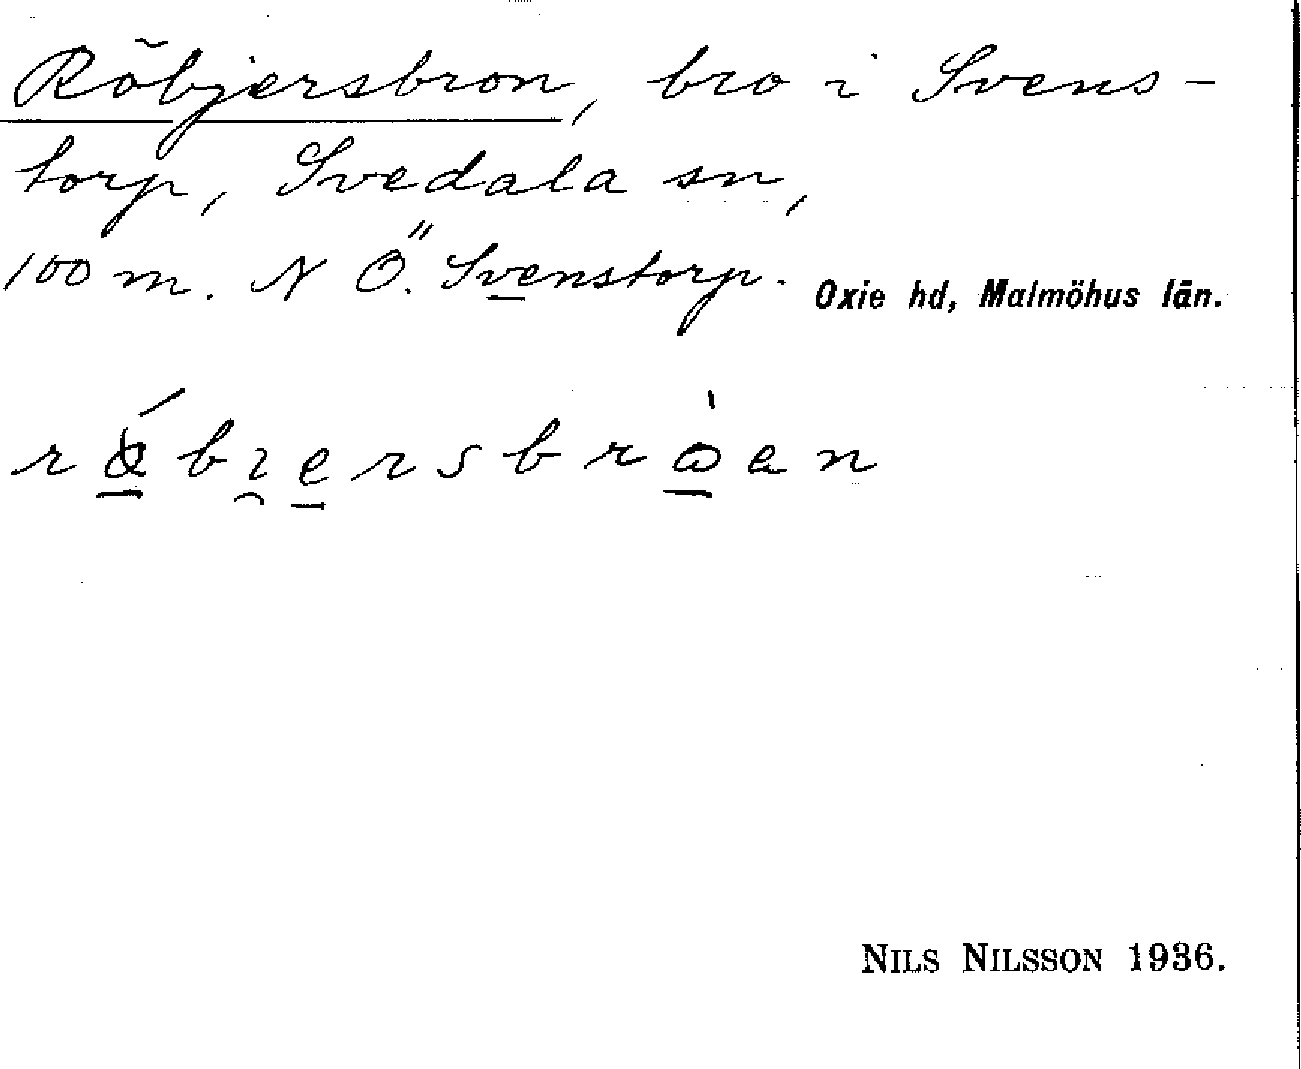 Röbjersbron, bro i Svens-
torp, Svedala sn,
100 m. N Ö. Svenstorp.
Oxie hd, Malmöhus län.
NILS NILSSON 1936.